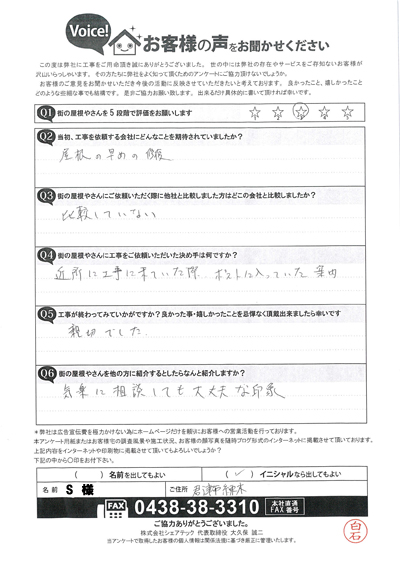 Voice!
お客様の声をお聞かせください
この度は弊社に工事をご用命頂き誠にありがとうございました。 世の中には弊社の存在やサービスをご存知ないお客様が
沢山いらっしゃいます。 その方たちに弊社をよく知って頂くためのアンケートにご協力頂けないでしょうか。
お客様のご意見をお聞かせいただき今後の活動に反映させていただきたいと考えております。 良かったこと、嬉しかったこと
どのような些細な事でも結構です。 是非ご協力お願い致します。 出来るだけ具体的に書いて頂ければ幸いです。
Q1 街の屋根やさんを5段階で評価をお願いします
☆ ☆ ☆ ☆ ☆
Q2 当初、工事を依頼する会社にどんなことを期待されていましたか?
屋根の早めの修復
Q3 街の屋根やさんにご依頼いただく際に他社と比較しました方はどこの会社と比較しましたか?
比較していない
Q4 街の屋根やさんに工事をご依頼いただいた決め手は何ですか?
近所に工事に来ていた際 ポストに入っていた案内
Q5 工事が終わってみていかがですか?良かった事・嬉しかったことを忌憚なく頂戴出来ましたら幸いです
親切でした
Q6 街の屋根やさんを他の方に紹介するとしたらなんと紹介しますか?
気楽に相談しても大丈夫な印象
*弊社は広告宣伝費を極力かけない為にホームページだけを頼りにお客様への営業活動を行っております。
本アンケート用紙またはお客様宅の調査風景や施工状況、お客様の顔写真を随時ブログ形式のインターネットに掲載させて頂いております。
上記内容をインターネットや印刷物に掲載させて頂いてもよろしいでしょうか?
下記の中から○印をお付下さい。
( ) 名前を出してもよい ( ✓ ) イニシャルなら出してもよい
名前 S 様 ご住所
FAX 0438-38-3310 本社直通 FAX番号
ご協力ありがとうございました。
株式会社シェアテック 代表取締役 大久保 誠二
当アンケートで取得したお客様の個人情報は関係法規に基づき厳正に管理いたします。
白石